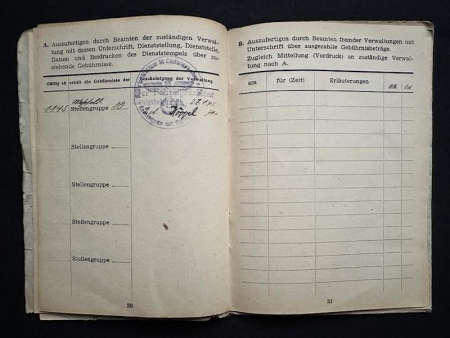 A. Auszufertigen durch Beamten der zuständigen Verwal-
tung mit dessen Unterschrift, Dienststellung, Dienststelle,
Datum und Beidrucken des Dienststempels über zu-
stehende Gebührnisse.
Gültig ab erhält die Gebührnisse der
Bescheinigung der Verwaltung
1.1.45
Stellengruppe 10
Stellengruppe
Stellengruppe
Stellengruppe
Stellengruppe
30
B. Auszufertigen durch Beamten fremder Verwaltungen mit
Unterschrift über ausgezahlte Gebührnisbeträge.
Zugleich Mitteilung (Vordruck) an zuständige Verwal-
tung nach A.
am
für (Zeit)
Erläuterungen
RM
31